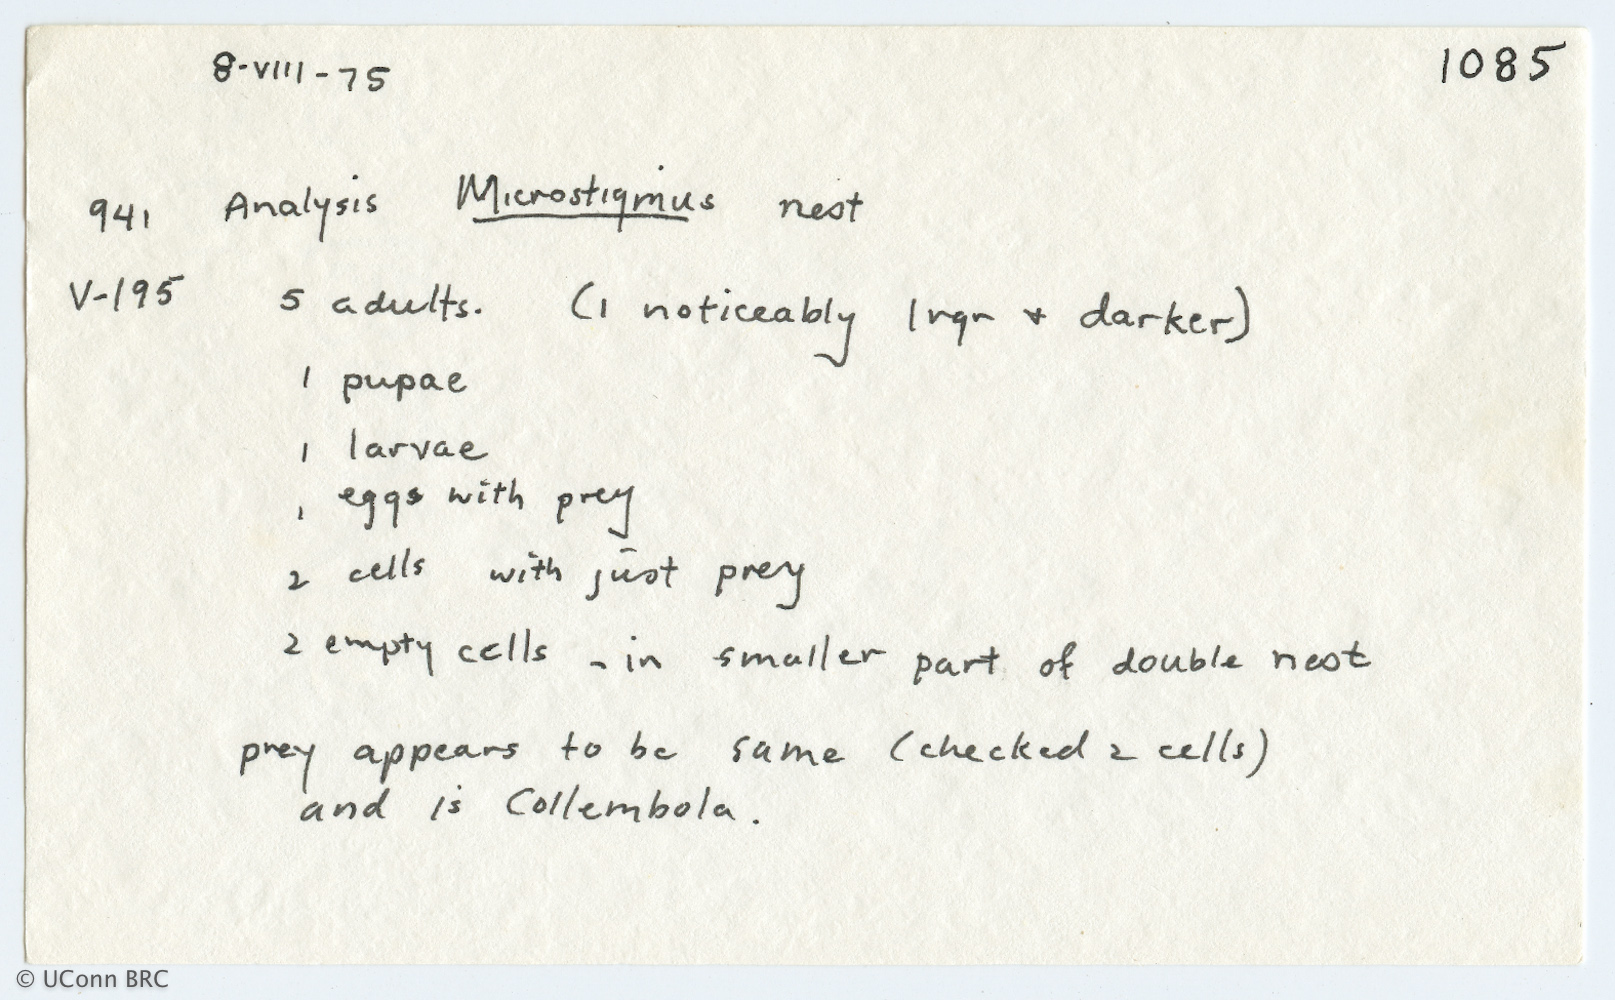 8-VIII-75 1085
941 Analysis Microstigmus nest
V-195 5 adults. (1 noticeably lrgr + darker)
1 pupae
1 larvae
1 eggs with prey
2 cells with just prey
2 empty cells - in smaller part of double nest
prey appears to be same (checked 2 cells)
and is Collembola.
© UConn BRC